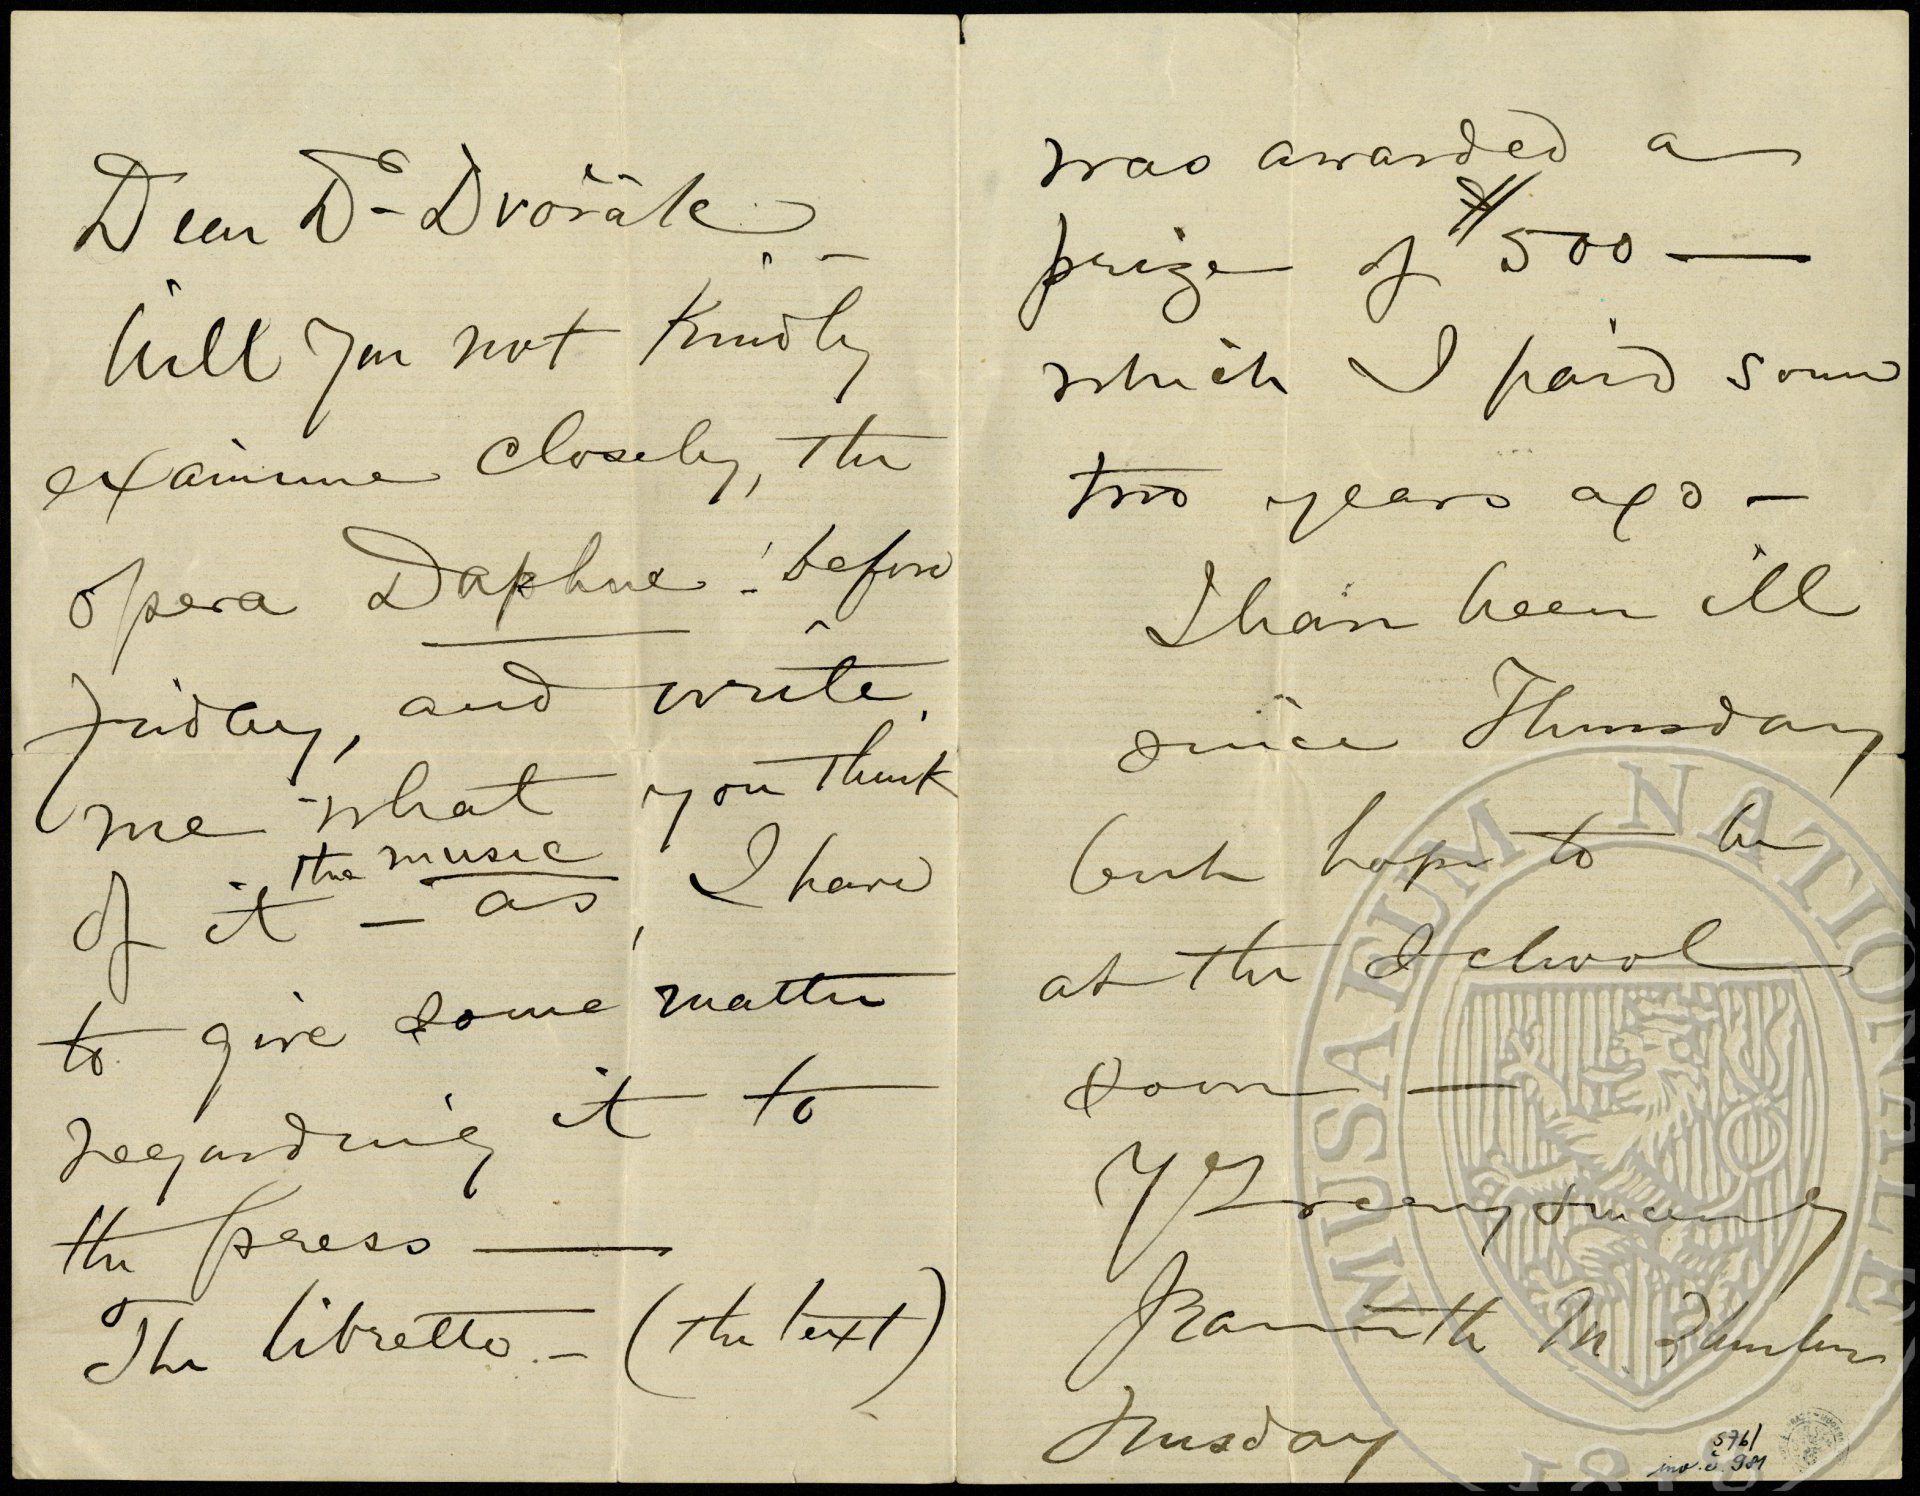 Dear Dr - Dvořák -
Will you not kindly
examine closely, the
opera Daphne! before
Friday, and write
me what you think
of it - the music as, I have
to give some matter
regarding it to
the press —
The libretto - (the text)
was awarded a
prize of $500 —
which I paid some
two years ago -
I have been ill
since Thursday
but hope to be
at the School
soon —
Yrs very sincerely
Jeannette M. Thurber
Tuesday
MUSAEUM NATIONALE
1818
576/
inv. č. 981